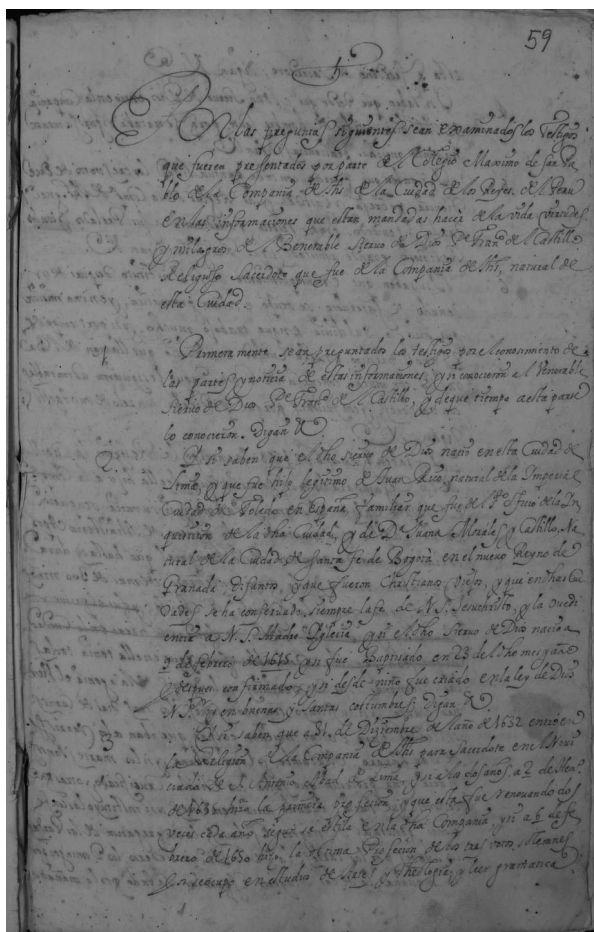 59
En las preguntas siguientes sean examinados los testigos
que fueren pressentados por parte de el Colegio Maximo de san Pa
blo de la Compañia de Jhs de la Ciudad de los Reyes de el Peru
en las informaciones que estan mandadas hacer de la vida, virtudes
y milagros de el Benerable siervo de Dios Pe Franco de el Castillo
Religioso sacerdote que fue de la Compania de Jhs, natural de
esta Ciudad.
1 Primeramente sean preguntados los testigos por el conocimiento de
las partes y noticia de estas informaciones, y si conocieron a el venerable
siervo de Dios Pe Franco de el Castillo, y de que tiempo a esta parte
lo conocieron. Digan &
2 Si saben que el dho siervo de Dios nacio en esta Ciudad de
Lima, y que fue hijo legitimo de Juan Rico, natural de la Imperial
Ciudad de Toledo en España familiar que fue de el sto oficio de la In
quisicion de la dha Ciudad, y de Da Juana Morales y Castillo, Na
tural de la Ciudad de santa fe de Bogotà en el nuevo Reyno de
Granada difuntos, y que fueron Christianos viejos, y que en
se ha conservado siempre la fe de N. S. Jesuchristo, y la ovedi
encia a N. S. Madre Yglesia, y si el dho siervo de Dios nacio a
9 de febrero de 1615 y si fue Baptizado en 23 de el dho mes y año
y despues confirmado, y si desde niño fue criado en la ley de Dios
N. S. y en buenas y santas costumbres Digan &
3 Si saben que a 31 de Diziembre de el año de 1632 entro en
la Religion de la Compania de Jhs para sacerdote en el Novi
ciado de S. Antonio Abad de Lima, y si a los dos años a 2 de
de 1635 hizo la primera profession, y que esta fue renovando dos
veces cada año segun se estila en la dha Compania, y si a 2 de fe
brero de 1650 hizo la vltima Profecion de los tres votos solemnes
y si se ocupo en estudios de Artes y Theologia y leer gramatica